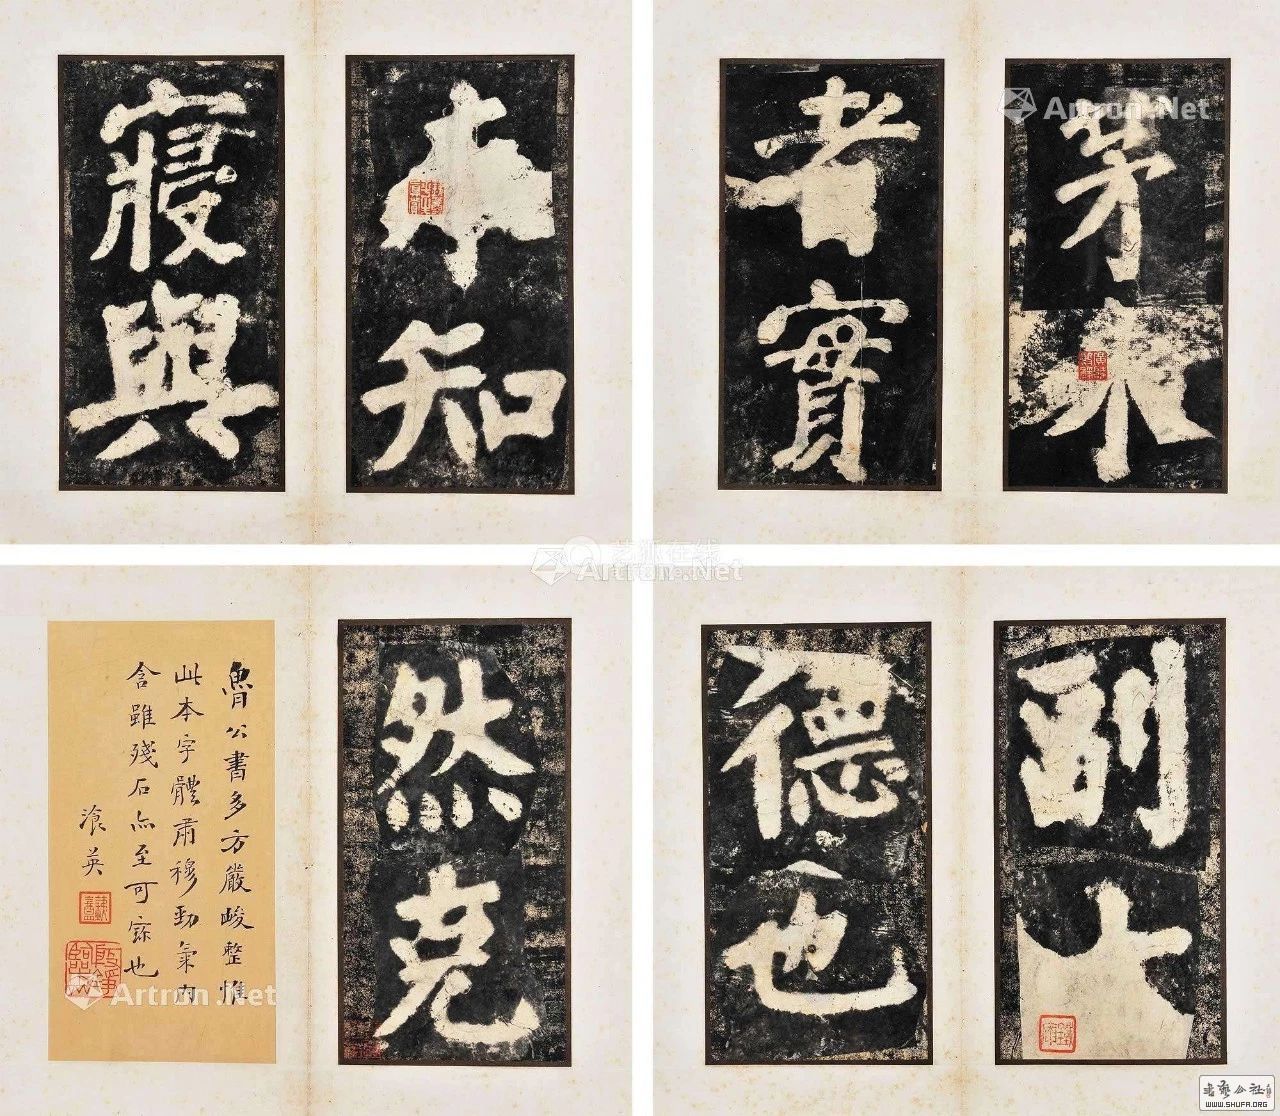 本知
寢興
茅東
者實
副
德也
然克
魯公書多方嚴峻整惟
此本字體肅穆勁氣内
含雖殘石亦至可寶也
滄英
Artron.Net
Artron.Net
艺狐在线
Artron.Net
WWW.SHUFA.ORG